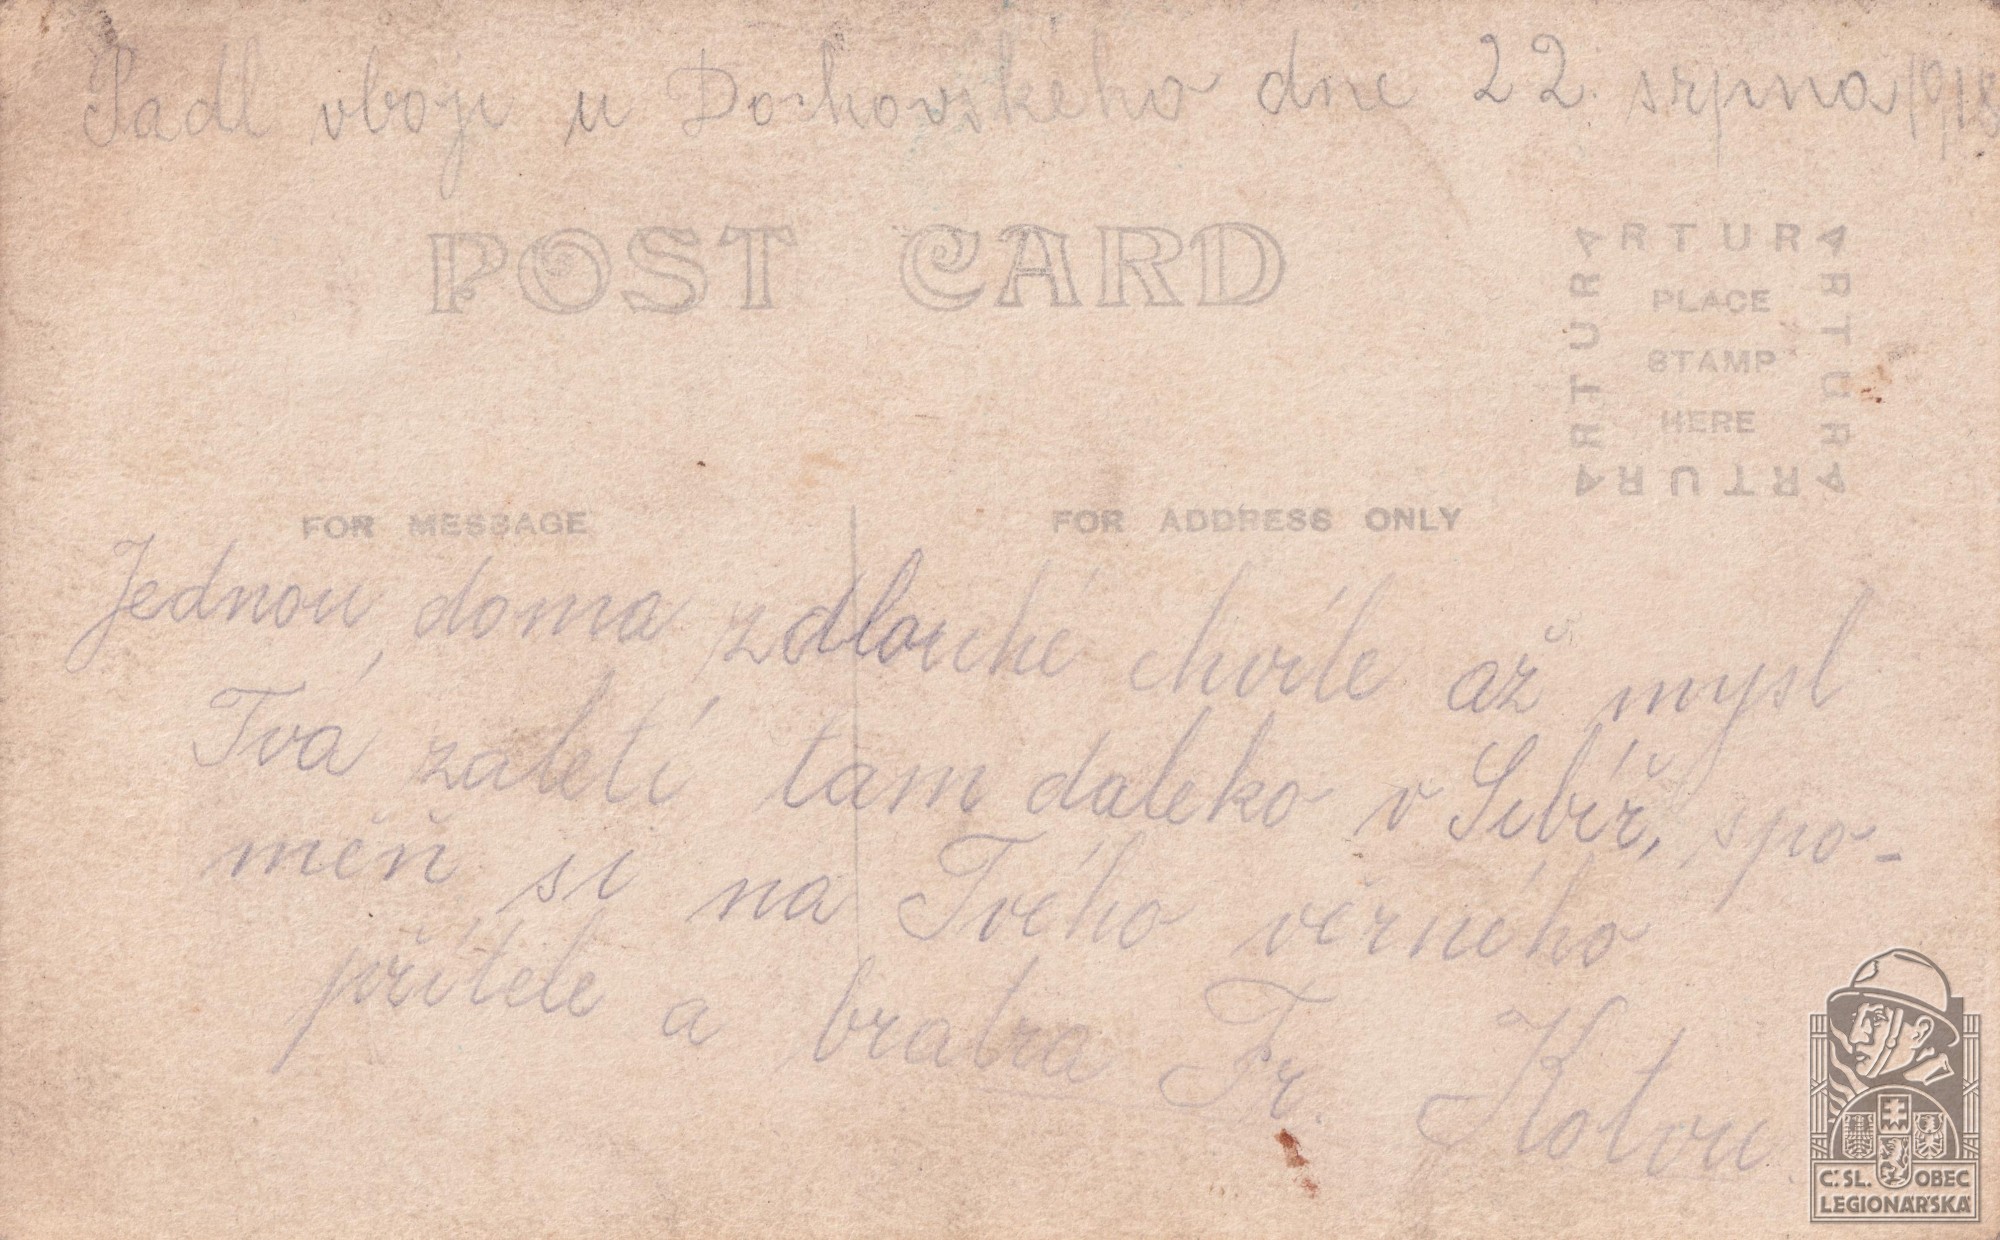 Padl vboji u Dochovského dne 22. srpna 1918
POST CARD
ARTURA ARTURA ARTURA ARTURA
PLACE
STAMP
HERE
FOR MESSAGE
FOR ADDRESS ONLY
Jednou, doma z dlouhé chvíle až mysl
Tvá zaletí tam daleko v Sibíř, spo-
měň si na Tvého věrného
přítele a bratra Fr. Kotou
Č.SL. OBEC
LEGIONÁŘSKÁ